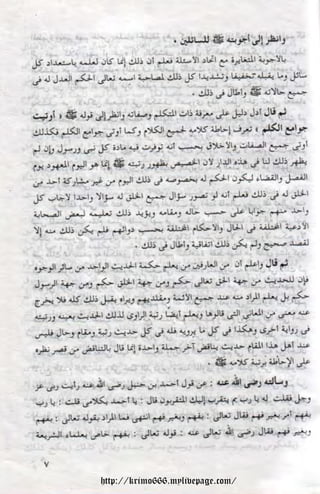 وانظر إلى أجوبته ﷺ للسائلين .
بالأجوبة المتغايرة مع اتحاد الأسئلة فعلم أن ذلك إنما كان لعلمه باستعداد كل
سائل وما يقبله تخفيفا وتشديدا كل ذلك لمصاحبة اسمه تعالى الحكم العدل له في
جميع حالاته ﷺ وأطال في ذلك .
ثم قال أدل دليل على معرفة ذات المتكلم وصفاته وانظر إلى قوله ﷺ « أوتيت
جوامع الكلم » تعرف إحاطة كلامه بجميع الكلام وكما أوتي جوامع الكلم فكذلك
أوتي جميع الصفات والأخلاق بحسب أنه توفرت فيه مادة كل نبي ورسول وإن لم
يظهر ذلك لنا في هذه الدار لأن الخصيص بظهور رتبته ﷺ إنما هو اليوم المعهود يوم
الفصل والقضاء ليكون الحكم له بخصوصه في ذلك اليوم من غير مشاركة أحد من
الخلق له في ذلك فعلم أنه لو تصور سؤال جميع الخلق له سؤالا واحدا لأجاب كل
واحد منهم جوابا على حسب حاله ومقامه ويؤيد ذلك تعليمه لبعض الصحابة
الأدعية المختلفة في الحال والأحكام المختلفة بحسب ذواتهم فلم يكن ذلك منه إلا
لقصد صحيح ولم يكن ذلك اتفاقية وأطال في ذلك .
ثم قال واعلم أن من العارفين من يعلم حكمة الحديث الواحد من سائر الوجوه
فإن للحديث من جهة الحق تعالى حكم ومن جهة الخلق حكم ومن جهة الرسول
حكم بل يعلم المراد منه عند جميع الأئمة ومقلديهم ويراه يقبل ذلك كله فلا يخرج
عنه معنى من المعاني التي قالوها ويعلم أيضا رتبة الراوي لذلك الحديث بعينه ورتبته
في رواية أخرى وهكذا في كل ما يرويه فله في كل حديث رتبة ومقام وحال فليس
عند أهل هذا المقام حديث يناقض آخر جملة واحدة إنما قال بالتناقض من قصر نظره
على الإحاطة برتبة كلامه ﷺ .
وسألته رضى الله عنه : عن قول أحمد بن حنبل رضى الله عنه رأيت ربى عز
وجل فقلت له يا رب بم يتقرب إليك المتقربون قال : يا أحمد بكلامي قلت : يا رب
بفهم أم بغير فهم فقال تعالى : بفهم وبغير فهم انتهى فما المراد بقوله تعالى : بفهم
وبغير فهم فقال رضى الله تعالى عنه : قوله تعالى : بفهم خاص بعلماء الشريعة
٧
http://krimo666.mylivepage.com/